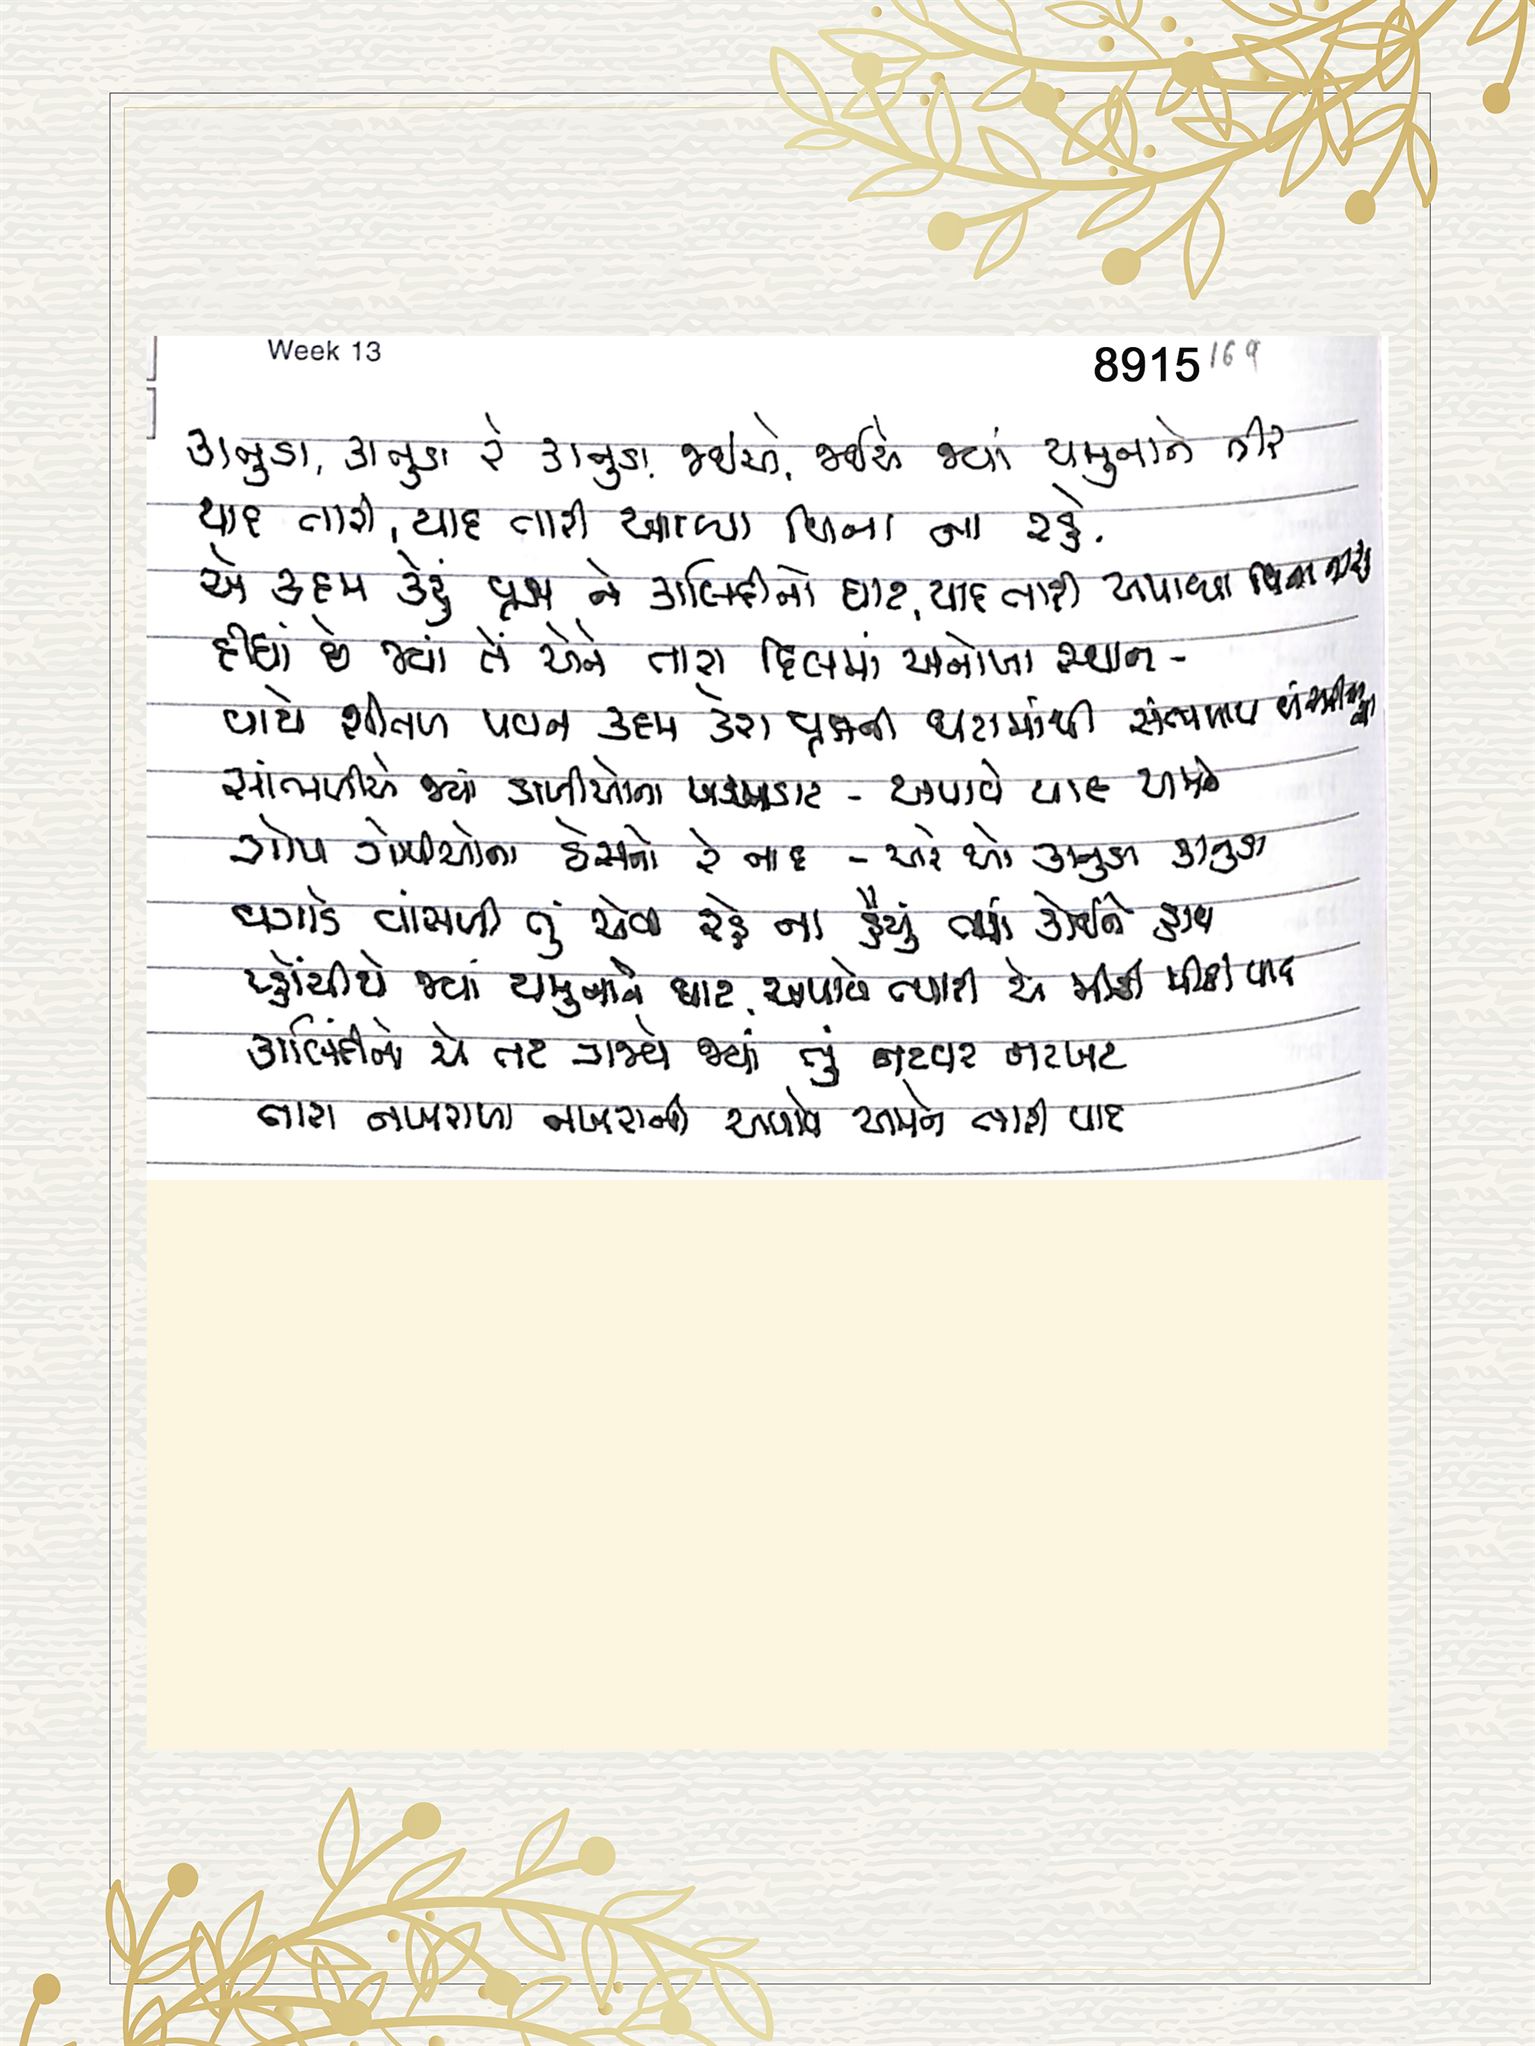 Week 13
8915 169
કાનુડા, કાનુડા રે કાનુડા જઈએ, જઈએ જ્યાં યમુનાને તીર
યાદ તારી, યાદ તારી આવ્યા વિના ના રહે.
એ કદમ કેરું વૃક્ષ ને કાલિંદીનો ઘાટ, યાદ તારી અપાવ્યા વિના
દીધાં છે જ્યાં તેં એને તારા દિલમાં અનોખા સ્થાન -
વાયે શીતળ પવન કદમ કેરા વૃક્ષની ઘટામાંથી સંભળાય
સાંભળીએ જ્યાં ડાળીઓના ખડખડાટ - અપાવે યાદ અમને
ગોપ ગોપીઓના ઠેસનો રે નાદ - અરે ઓ કાનુડા કાનુડા
વગાડે વાંસળી તું એવી રહે ના હૈયું ત્યાં કોઈને હાથ
પ્હોંચીયે જ્યાં યમુનાને ઘાટ, અપાવે ત્યારી એ મીઠી મીઠી યાદ
કાલિંદીનો એ તટ ગજવે જ્યાં તું નટવર નટખટ
તારા નખરાળા નખરાની અપાવે અમને તારી યાદ